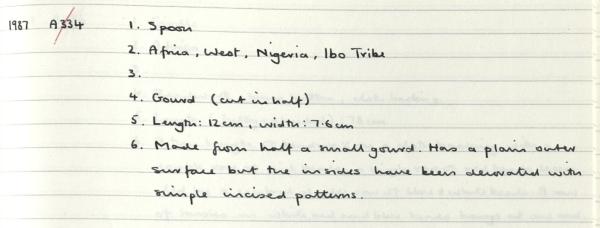 1987 A334 1. Spoon
2. Africa, West, Nigeria, Ibo Tribe
3.
4. Gourd (cut in half)
5. Length: 12cm, width: 7.6cm
6. Made from half a small gourd. Has a plain outer
surface but the insides have been decorated with
simple incised patterns.